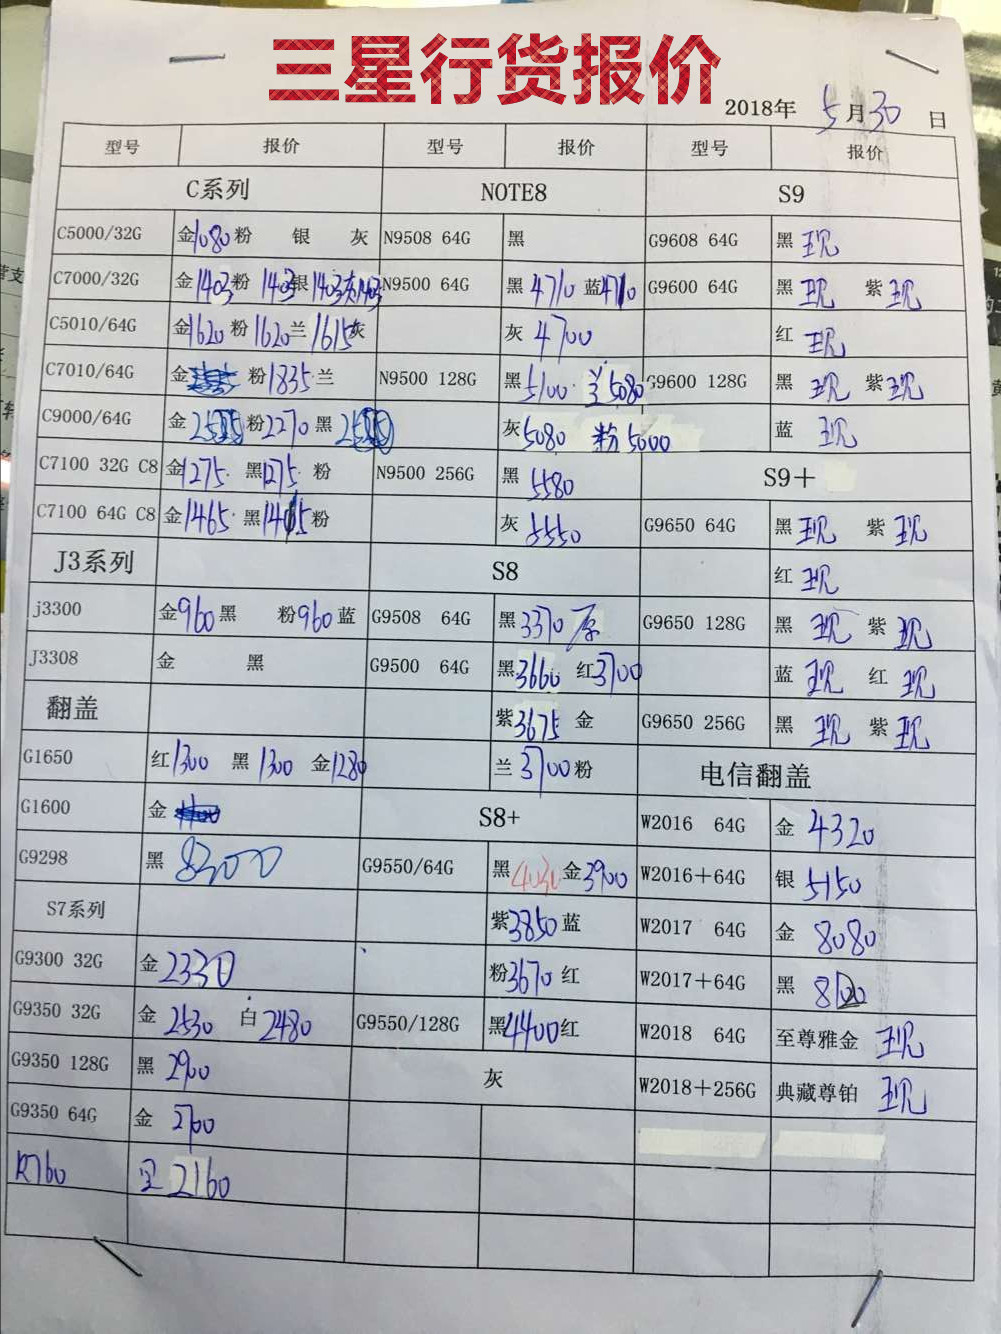 三星行货报价
2018年 5月30日
型号 报价 型号 报价 型号 报价
C系列 NOTE8 S9
C5000/32G 金1080 粉 银 灰 N9508 64G 黑 G9608 64G 黑 现
C7000/32G 金1403 粉1403 银1403 灰1403 N9500 64G 黑4710 蓝4710 G9600 64G 黑 现 紫 现
C5010/64G 金1620 粉1620 兰1615 灰 灰4700 红 现
C7010/64G 金 粉1835 兰 N9500 128G 黑5100 兰5080 G9600 128G 黑 现 紫 现
C9000/64G 金 粉2270 黑 灰5080 粉5000 蓝 现
C7100 32G C8 金1275 黑1275 粉 N9500 256G 黑5580 S9+
C7100 64G C8 金1465 黑 粉 灰5550 G9650 64G 黑 现 紫 现
J3系列 S8 红 现
j3300 金960 黑 粉960 蓝 G9508 64G 黑3370 G9650 128G 黑 现 紫 现
J3308 金 黑 G9500 64G 黑3660 红3700 蓝 现 红 现
翻盖 紫3675 金 G9650 256G 黑 现 紫 现
G1650 红1300 黑1300 金1280 兰3700 粉 电信翻盖
G1600 金 S8+ W2016 64G 金4320
G9298 黑8300 G9550/64G 黑4030 金3900 W2016+64G 银5150
S7系列 紫3850 蓝 W2017 64G 金8080
G9300 32G 金2330 粉3670 红 W2017+64G 黑
G9350 32G 金2530 白2480 G9550/128G 黑4400 红 W2018 64G 至尊雅金 现
G9350 128G 黑2900 灰 W2018+256G 典藏尊铂 现
G9350 64G 金2700
2160